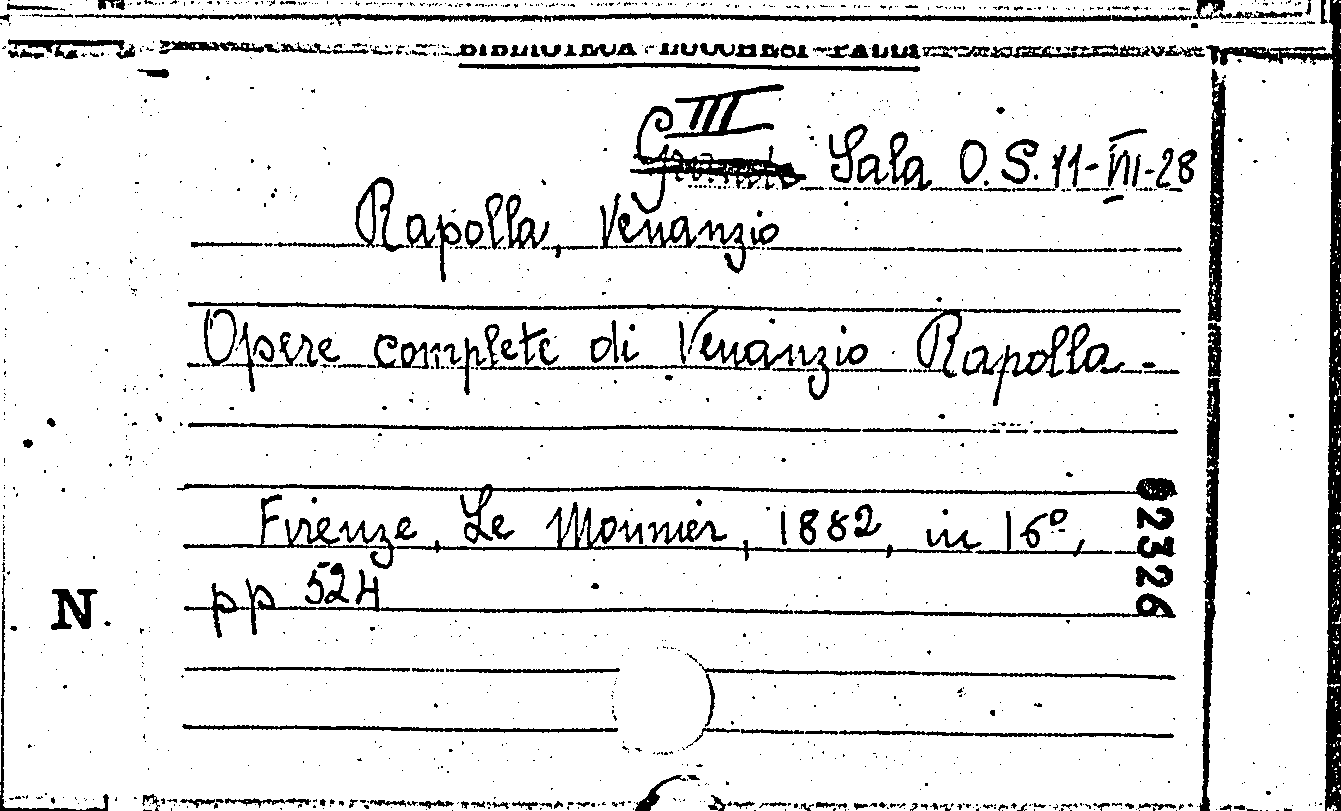 BIBLIOTECA LUCCHESI PALLI
III
Sala O.S. 11-VII-28
Rapolla, Venanzio
Opere complete di Venanzio Rapolla.
Firenze, Le Monnier, 1882, in 16º,
pp 524
N
62326